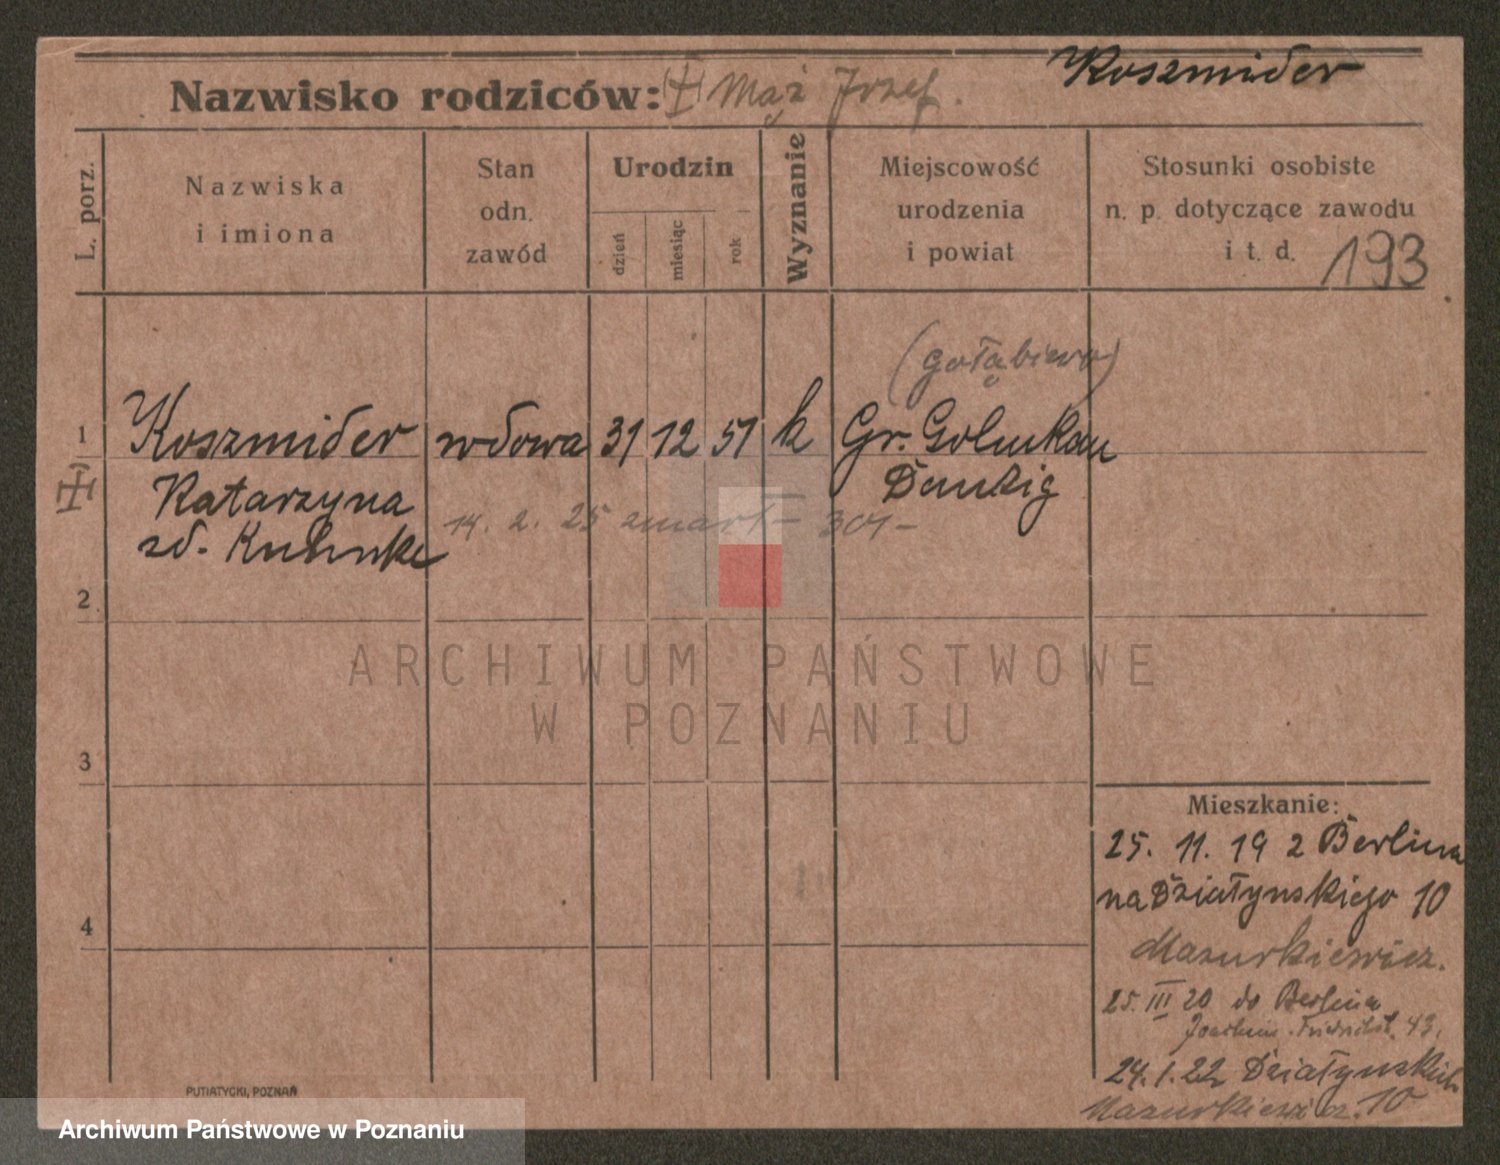 Koszmider
Nazwisko rodziców: (+) Mąż Józef.
L. porz.
Nazwiska
i imiona
Stan
odn.
zawód
Urodzin
dzień
miesiąc
rok
Wyznanie
Miejscowość
urodzenia
i powiat
Stosunki osobiste
n. p. dotyczące zawodu
i t. d. 193
(Gołąbiewo)
1 Koszmider wdowa 31 12 51 k Gr. Golmkau
Katarzyna Danzig
14. 2. 25 zmart – 301 –
zd. Kuhnke
2
ARCHIWUM PAŃSTWOWE
W POZNANIU
3
Mieszkanie:
25. 11. 19 z Berlina
na Działyńskiego 10
4
Mazurkiewicz.
25. III 20 do Berlina
Joachim Friedrichst. 43.
24. 1. 22 Działyńskich
Mazurkiewicz. 10
PUTIATYCKI, POZNAŃ
Archiwum Państwowe w Poznaniu